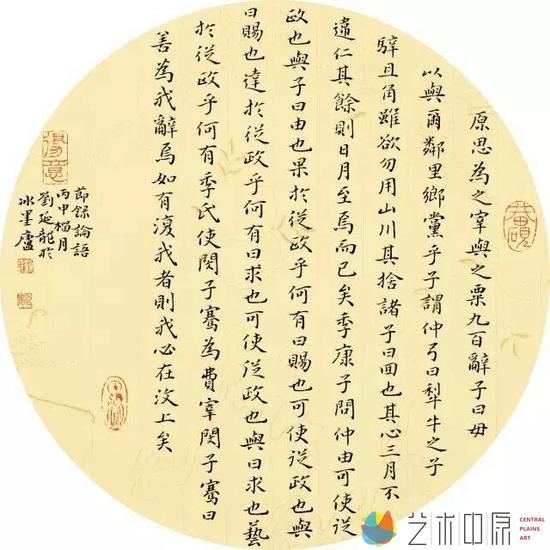 原思為之宰與之粟九百辭子曰毋
以與爾鄰里鄉黨乎子謂仲弓曰犁牛之子
騂且角雖欲勿用山川其捨諸子曰回也其心三月不
違仁其餘則日月至焉而已矣季康子問仲由可使從
政也與子曰由也果於從政乎何有曰賜也可使從政也與
曰賜也達於從政乎何有曰求也可使從政也與曰求也藝
於從政乎何有季氏使閔子騫為費宰閔子騫曰
善為我辭焉如有復我者則我必在汶上矣
節錄論語
丙申榴月
劉延龍於
冰墨廬
艺术中原
CENTRAL
PLAINS
ART